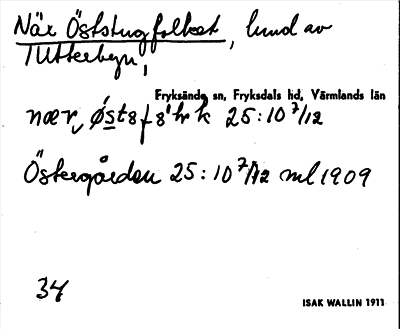 När Öststugfolket, lund av
Tutterbyn,
Fryksände sn, Fryksdals hd, Värmlands län
nær 25:10 7/12
Östergården 25:10 7/12 ml 1909
34
ISAK WALLIN 1911